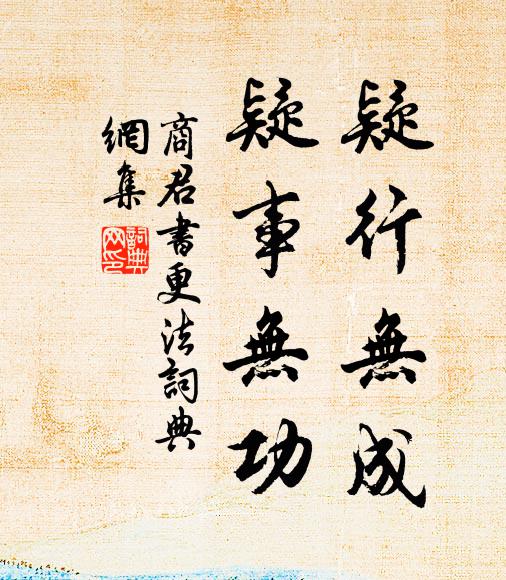 疑行無成
疑事無功
商君書更法詞典
網集
詞典
网印